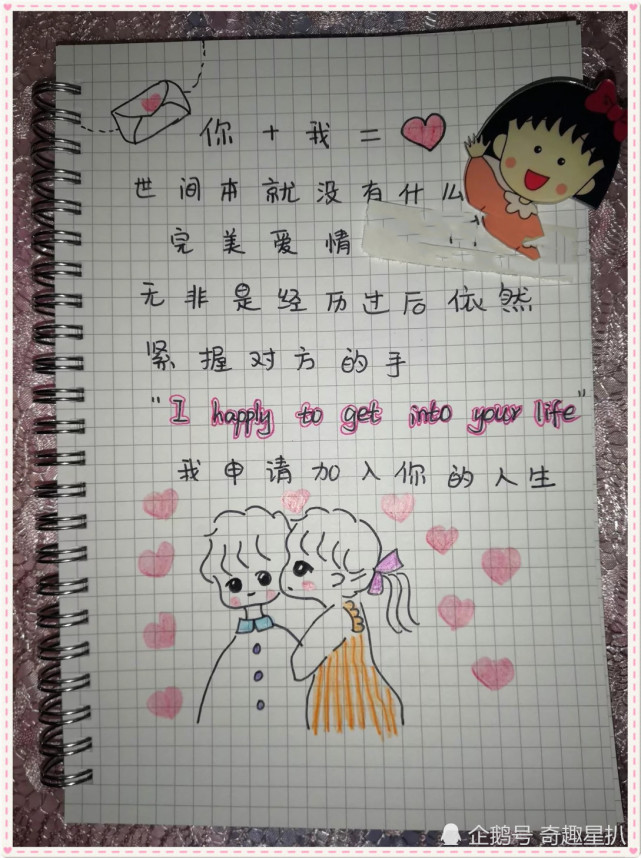 你 + 我 =
世间本就没有什么
完美爱情
无非是经历过后依然
紧握对方的手
"I happly to get into your life"
我申请加入你的人生
企鹅号 奇趣星扒